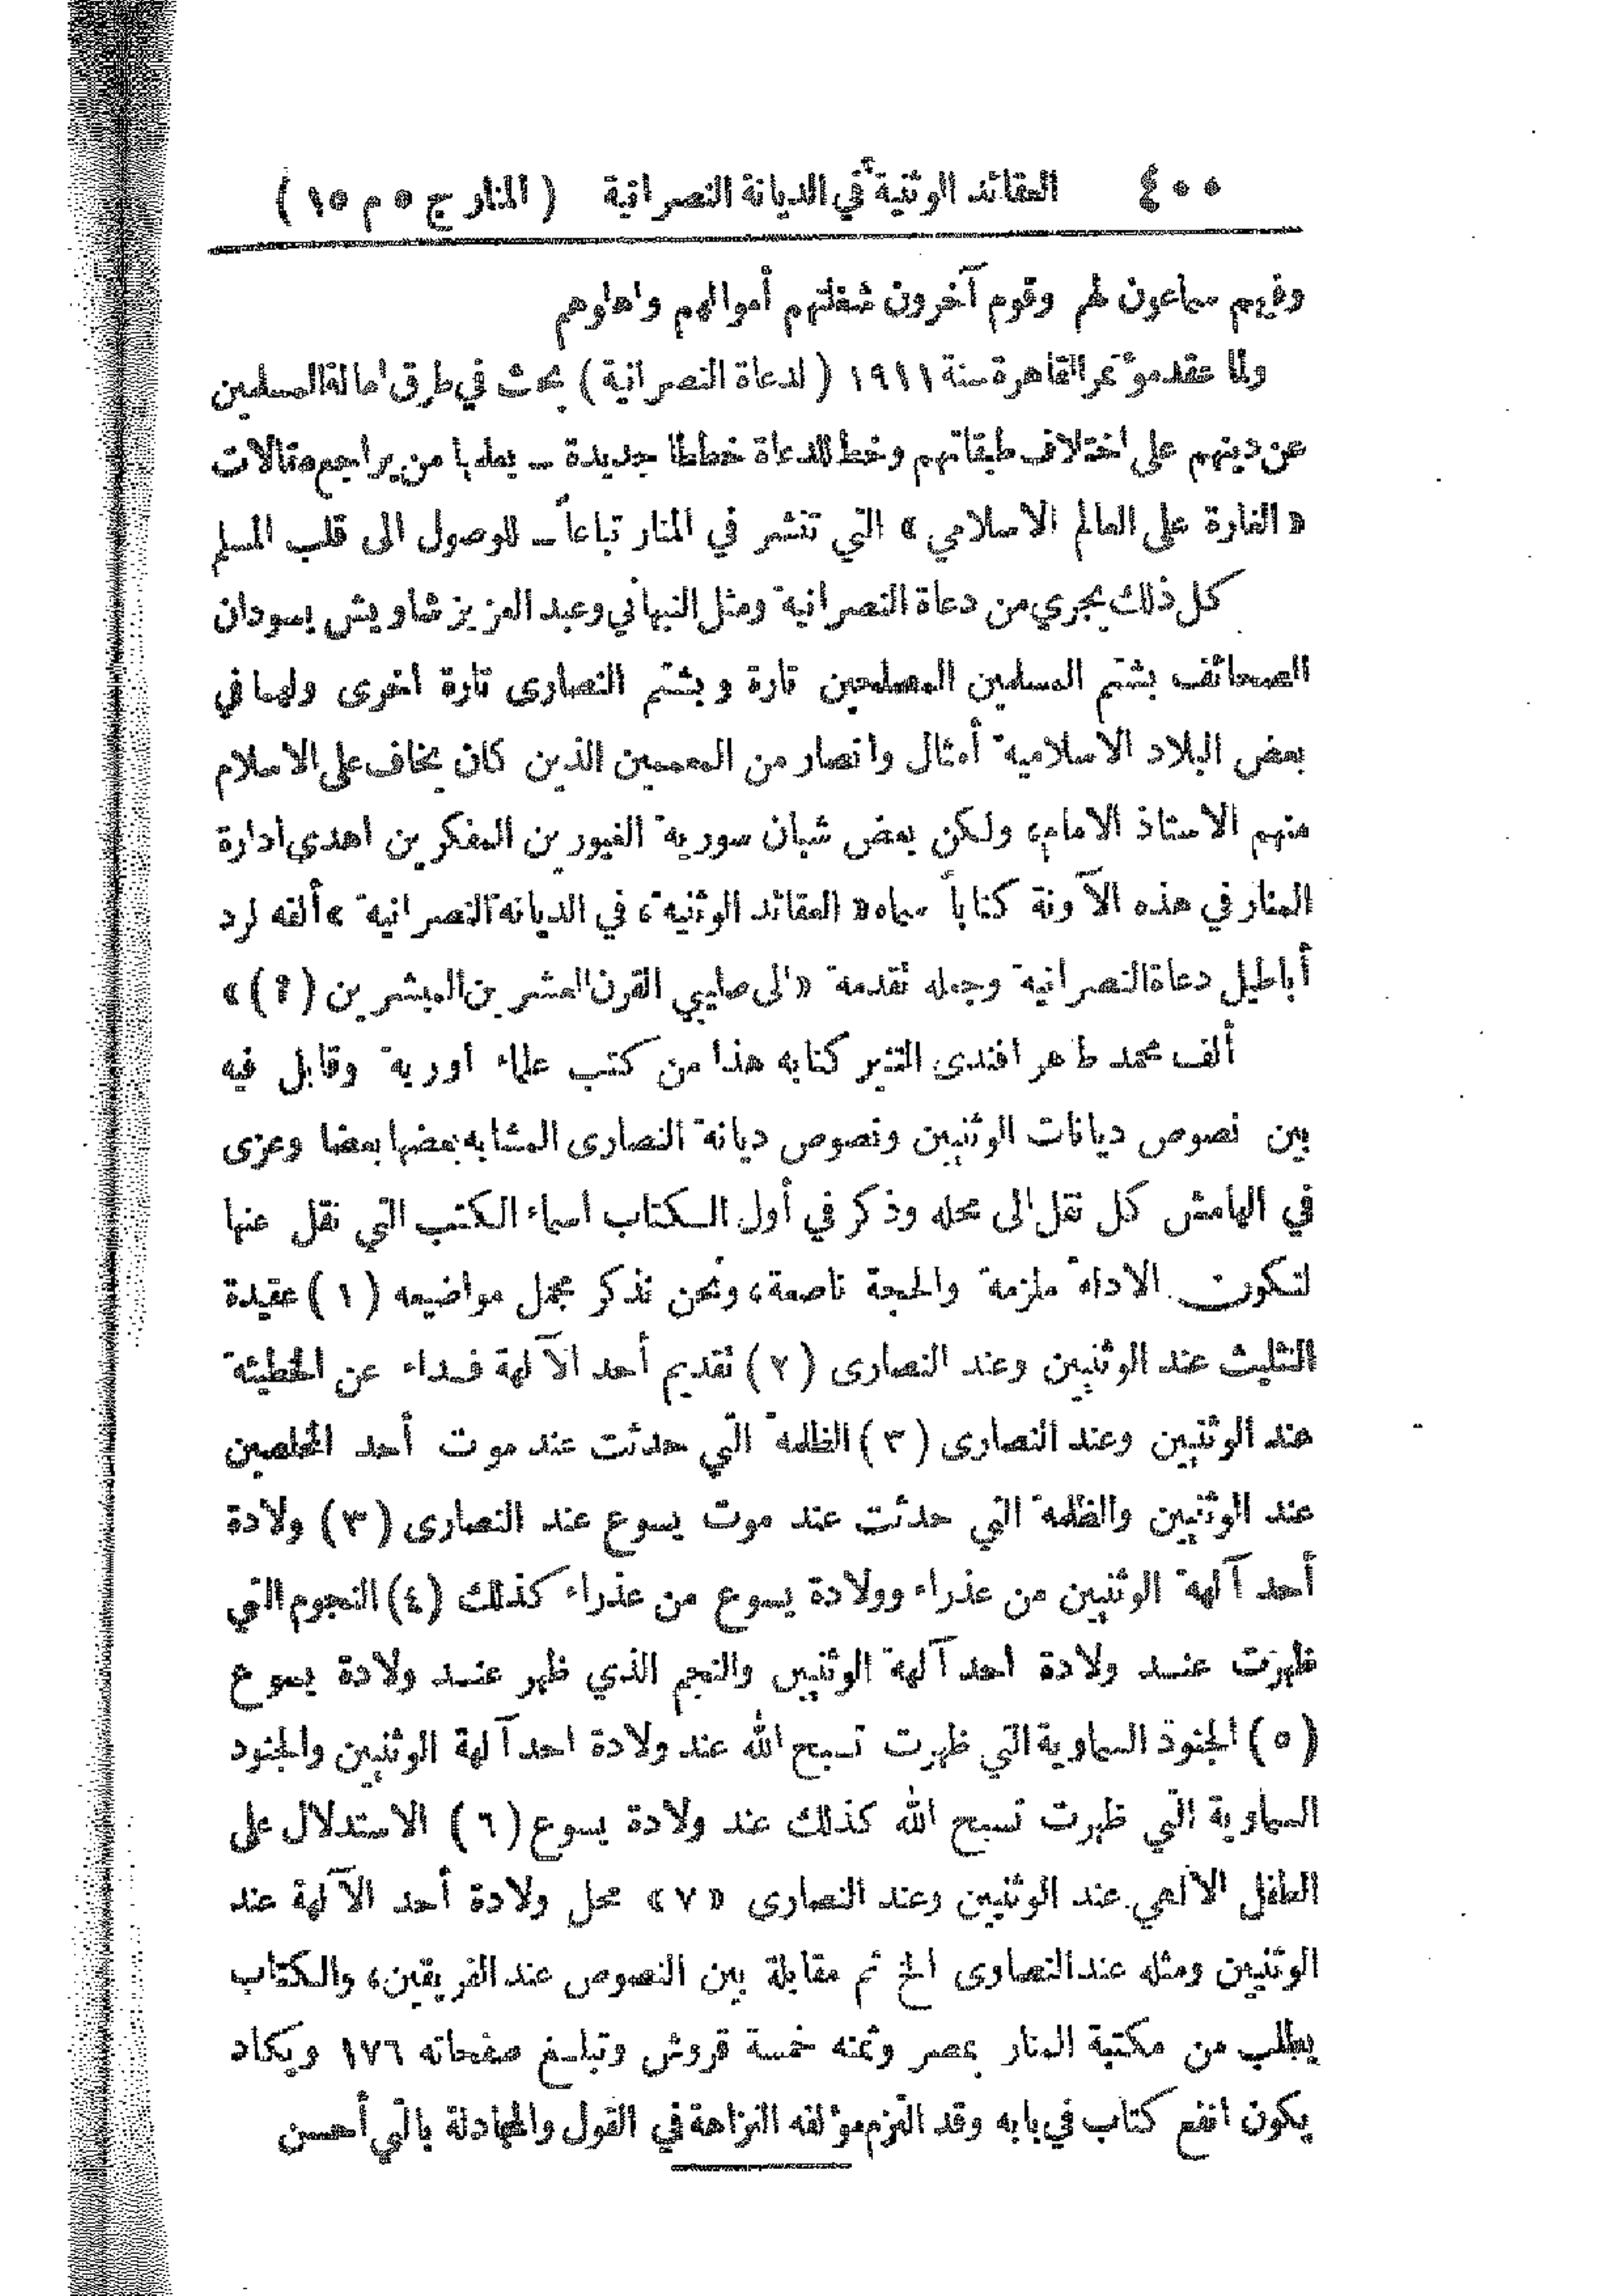 ٤٠٠ العقائد الوثنية في الديانة النصرانية ( المنار ج ٥ م ١٥ )
وفيهم سماعون لهم وقوم آخرون شغلتهم أموالهم واهلوهم
ولما عقد مؤتمر القاهرة سنة ١٩١١ ( لدعاة النصرانية ) بحث في طرق امالة المسلمين
عن دينهم على اختلاف طبقاتهم وخط للدعاة خططا جديدة ــ يعلمها من يراجع مقالات
« الغارة على العالم الاسلامي » التي تنشر في المنار تباعاً ــ للوصول الى قلب المسلم
كل ذلك يجري من دعاة النصرانية ومثل النبهاني وعبد العزيز شاويش يسودان
الصحائف بشتم المسلمين المصلحين تارة وبشتم النصارى تارة اخرى ولهما في
بعض البلاد الاسلامية أمثال وانصار من المعممين الذين كان يخاف على الاسلام
منهم الاستاذ الامام، ولكن بعض شبان سورية الغيورين المفكرين اهدى ادارة
المنار في هذه الآونة كتاباً سماه « العقائد الوثنية، في الديانة النصرانية » ألفه لرد
أباطيل دعاة النصرانية وجعله تقدمة « الى صليبي القرن العشرين المبشرين (؟) »
ألف محمد طاهر افندى التنير كتابه هذا من كتب علماء اوربة وقابل فيه
بين نصوص ديانات الوثنيين ونصوص ديانة النصارى المشابه بعضها بعضا وعزى
في الهامش كل نقل الى محله وذكر في أول الكتاب اسماء الكتب التي نقل عنها
لتكون الادلة ملزمة والحجة ناصعة، ونحن نذكر مجمل مواضيعه (١) عقيدة
التثليث عند الوثنيين وعند النصارى (٢) تقديم أحد الآلهة فداء عن الخطيئة
عند الوثنيين وعند النصارى (٣) الظلمة التي حدثت عند موت أحد المخلصين
عند الوثنيين والظلمة التي حدثت عند موت يسوع عند النصارى (٣) ولادة
أحد آلهة الوثنيين من عذراء وولادة يسوع من عذراء كذلك (٤) النجوم التي
ظهرت عند ولادة احد آلهة الوثنيين والنجم الذي ظهر عند ولادة يسوع
(٥) الجنود السماوية التي ظهرت تسبح الله عند ولادة احد آلهة الوثنيين والجنود
السماوية التي ظهرت تسبح الله كذلك عند ولادة يسوع (٦) الاستدلال على
الطفل الالهي عند الوثنيين وعند النصارى «٧» محل ولادة أحد الآلهة عند
الوثنيين ومثله عند النصارى الخ ثم مقابلة بين النصوص عند الفريقين، والكتاب
يطلب من مكتبة المنار بمصر وثمنه خمسة قروش وتبلغ صفحاته ١٧٦ ويكاد
يكون انفع كتاب في بابه وقد التزم مؤلفه النزاهة في القول والمجادلة بالتي أحسن